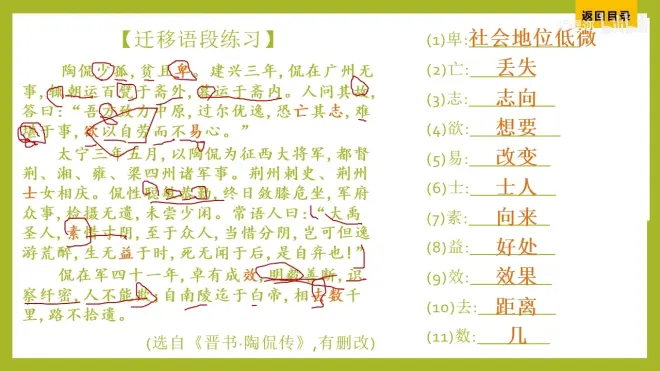 返回目录
【迁移语段练习】
陶侃少孤,贫且卑。建兴三年,侃在广州无
事,辄朝运百甓于斋外,暮运于斋内。人问其故,
答曰:“吾方致力中原,过尔优逸,恐亡其志,难
堪于事,欲以自劳而不易心。”
太宁三年五月,以陶侃为征西大将军,都督
荆、湘、雍、梁四州诸军事。荆州刺史、荆州
士女相庆。侃性聪敏恭勤,终日敛膝危坐,军府
众事,检摄无遗,未尝少闲。常语人曰:“大禹
圣人,素惜寸阴,至于众人,当惜分阴,岂可但逸
游荒醉,生无益于时,死无闻于后,是自弃也!”
侃在军四十一年,卓有成效,明毅善断,识
察纤密,人不能欺;自南陵迄于白帝,相去数千
里,路不拾遗。
(选自《晋书·陶侃传》,有删改)
(1)卑:社会地位低微
(2)亡:丢失
(3)志:志向
(4)欲:想要
(5)易:改变
(6)士:士人
(7)素:向来
(8)益:好处
(9)效:效果
(10)去:距离
(11)数:几